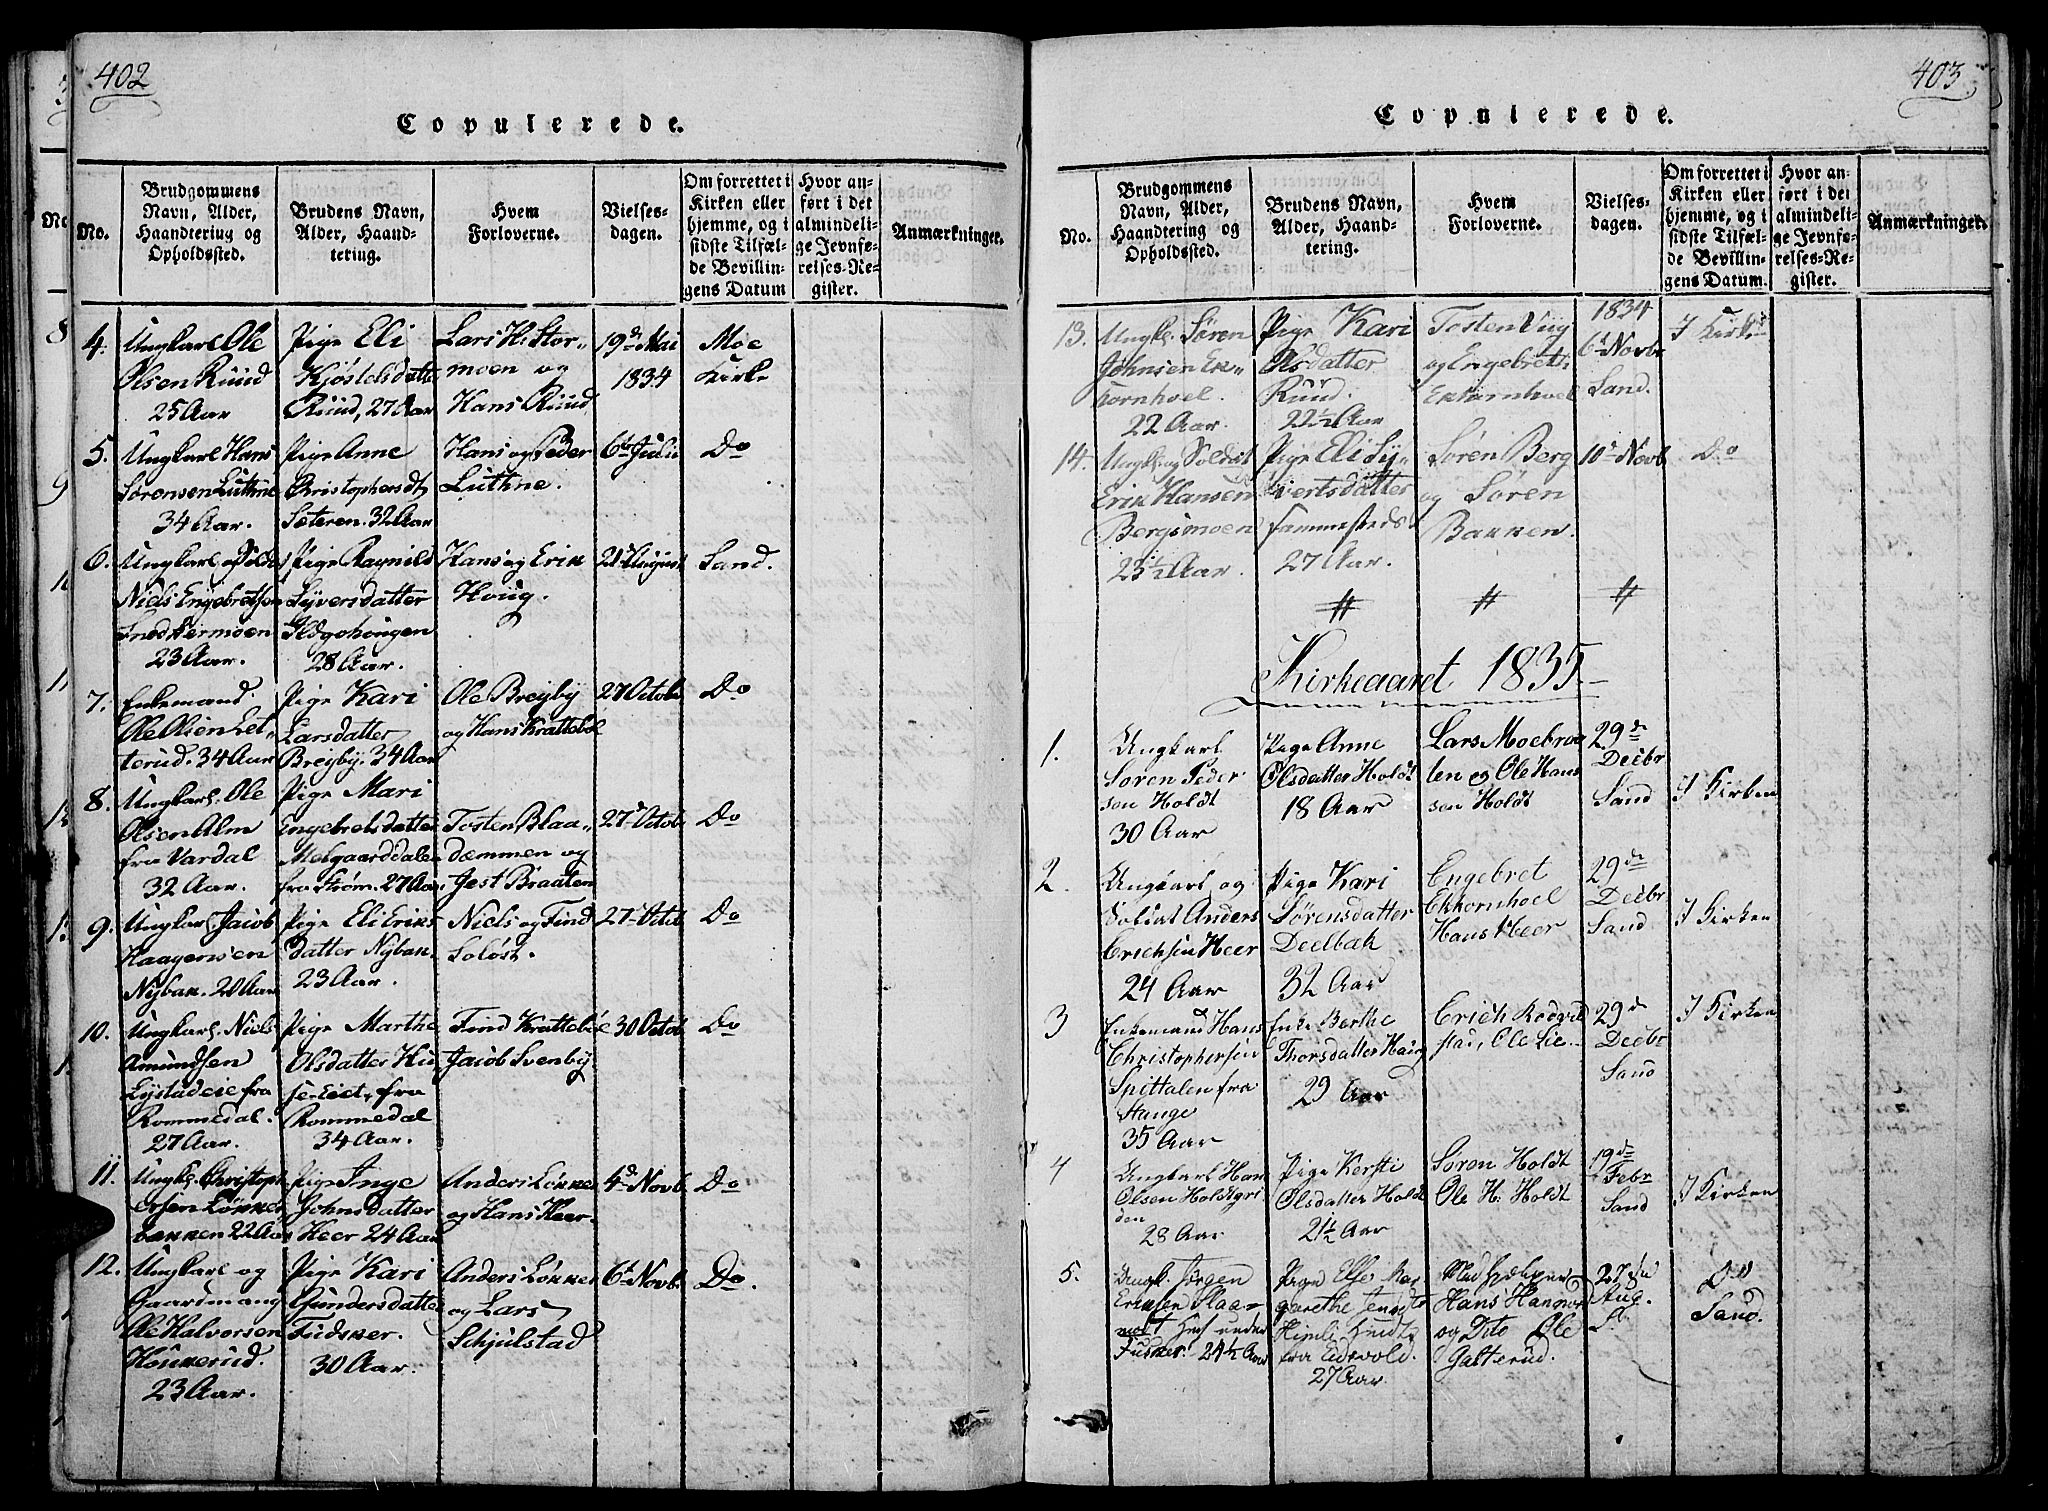 402
Copulerede.
No.
Brudgommens
Navn, Alder,
Haandtering og
Opholdssted.
Brudens Navn,
Alder, Haand-
tering.
Hvem
Forloverne.
Vielses-
dagen.
Om forrettet i
Kirken eller
hjemme, og i
sidste Tilfæl-
de Bevillin-
gens Datum
Hvor an-
ført i det
almindeli-
ge Jevnfø-
relses-Re-
gister.
Anmærkninger.
4. Ungkarl Ole
Olsen Ruud
25 Aar
Pige Eli
Kjøstelsdatter
Ruud, 27 Aar
Lars H. Stor-
moen og
Hans Ruud
19d Mai
1834
Moe
Kirke
5. Ungkarl Hans
Sørensen Luthne
34 Aar.
Pige Anne
Christophersdt
Sæteren. 32 Aar
Hans og Peder
Luthne.
6t Julii
Do
6. Ungkarl og Soldt
Niels Engebretsen
23 Aar.
Pige Ragnild
Syversdatter
28 Aar.
Hans og Erik
Houg.
21d August
Sand.
7. Enkemand
Ole Olsen Let-
terud. 34 Aar
Pige Kari
Larsdatter
Breyby. 34 Aar
Ole Breyby
og Hans Krattebøl
27 Octob
Do
8. Ungkarl. Ole
Olsen Alm
fra Vardal
32 Aar.
Pige Mari
Engebretsdatter
Melgaarddalen
fra Strøm. 27 Aar.
Tosten Blaa-
dæmmen og
Jest Braaten
27d Octob
Do
9. Ungkarl. Jacob
Haagensen
Nybak. 20 Aar
Pige Eli Eriks
datter Nybak.
23 Aar.
Niels og Find
Soløst.
27d Octob
Do
10. Ungkarl. Niels
Amundsen
Lystadeie fra
Rommedal.
27 Aar.
Pige Marthe
Olsdatter Hu
se-Eiet, fra
Rommedal
34 Aar.
Find Krattebøl
Jacob Svenby
30 Octob
Do
11. Ungk. Christoph
ersen Løkker
bakken 22 Aar
Pige Inge
Johnsdatter
Heer 24 Aar
Anders Løkker
og Hans Heer.
4d Novb.
Do
12. Ungkarl og
Gaardmand
Ole Halvorsen
Houkerud.
23 Aar.
Pige Kari
Gundersdatter
Fudsker.
30 Aar.
Anders Løkker
og Lars
Schjulstad
6t Novb.
Do.
403
Copulerede.
No.
Brudgommens
Navn, Alder,
Haandtering og
Opholdssted.
Brudens Navn,
Alder, Haand-
tering.
Hvem
Forloverne.
Vielses-
dagen.
Om forrettet i
Kirken eller
hjemme, og i
sidste Tilfæl-
de Bevillin-
gens Datum.
Hvor an-
ført i det
almindeli-
ge Jevnfø-
relses-Re-
gister.
Anmærkninger.
13. Ungk. Søren
Johnsen Ek-
kornhoel.
22 Aar
Pige Kari
Olsdatter
Ruud.
22½ Aar
Tosten Viig
og Engebret
Ekkornhoel
1834
6t Novbr
Sand.
I Kirke
14. Ungk. og Soldat
Erik Hansen
Bergsmoen
23½ Aar.
Pige Eli Sy-
vertsdatter
sammesteds
27 Aar.
Søren Berg
og Søren
Bakken.
10d Novb.
Do
Kirkeaaret 1835
1. Ungkarl
Søren Peder
sen Holdt
30 Aar
Pige Anne
Olsdatter Holdt
18 Aar
Lars Moebraa
ten og Ole Hans
sen Holdt
29de
Decbr
Sand
I Kirken
2. Ungkarl og
Soldat Anders
Erichsen Heer
24 Aar
Pige Kari
Sørensdatter
Deelbak
32 Aar
Engebret
Ekkornhoel
Hans Heer
29de
Decbr
Sand
I Kirken
3 Enkemand Hans
Christophersen
Spittalen fra
Stange
35 Aar
Enke Berthe
Thorsdatter Haug
29 Aar
Erich Rodvel
stad, Ole Lie.
29de
Decbr
Sand
I Kirken
4 Ungkarl Hans
Olsen Holdtgri
den
28 Aar
Pige Kersti
Olsdatter Holdt
21½ Aar
Søren Holdt
Ole H. Holdt
19de
Febr
Sand
I Kirken
5. Ungk. Jørgen
Eriksen Slaa-
under
24½ Aar
Pige Else Mar
garethe
fra Eidsvold.
27 Aar.
Hans
og Dito Ole
Galterud.
27de
Aug.
Do
Sand.